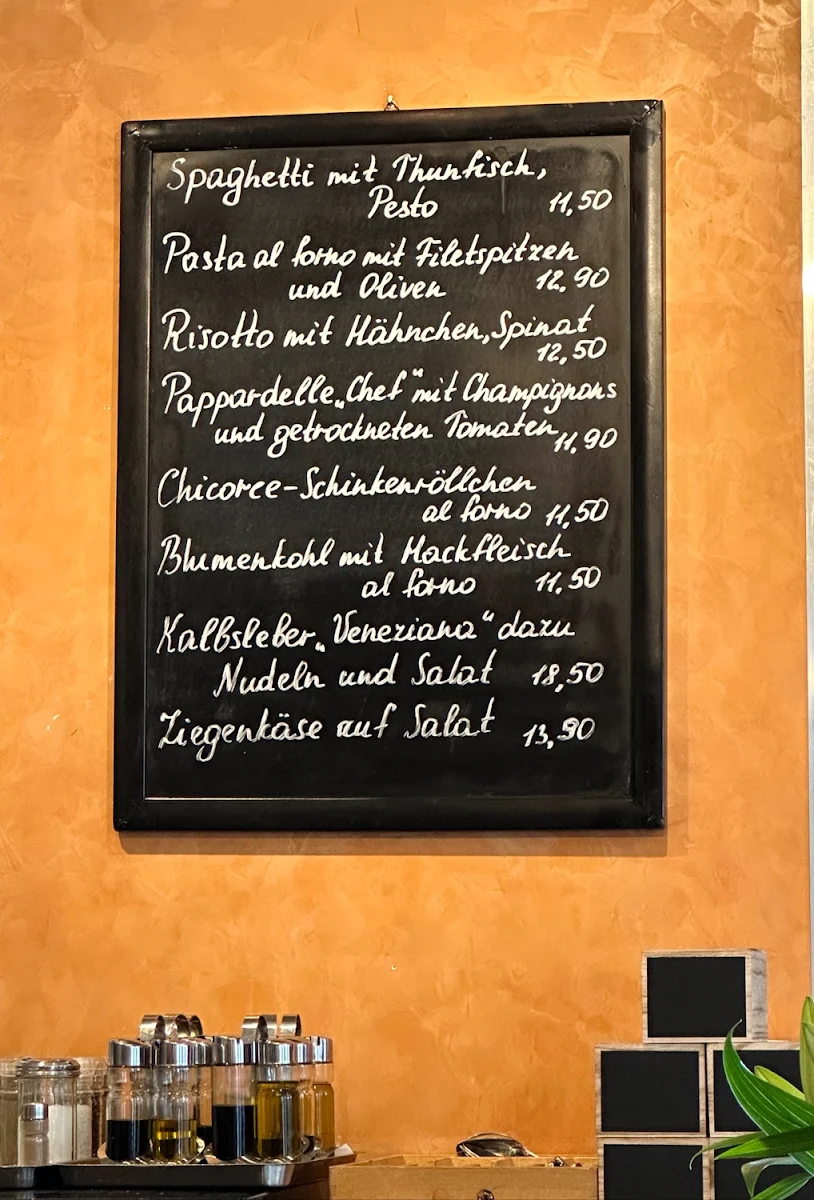 Spaghetti mit Thunfisch,
Pesto 11,50
Pasta al forno mit Filetspitzen
und Oliven 12.90
Risotto mit Hähnchen, Spinat
12,50
Pappardelle „Chef“ mit Champignons
und getrockneten Tomaten 11,90
Chicoree-Schinkenröllchen
al forno 11,50
Blumenkohl mit Hackfleisch
al forno 11,50
Kalbsleber „Veneziana“ dazu
Nudeln und Salat 18,50
Ziegenkäse auf Salat 13,90